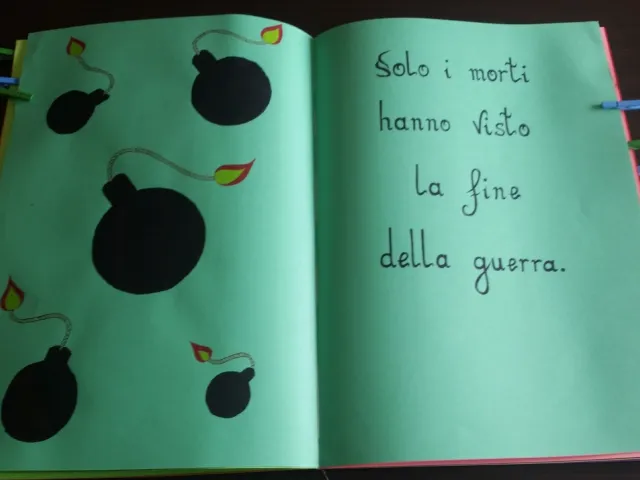 Solo i morti
hanno visto
la fine
della guerra.